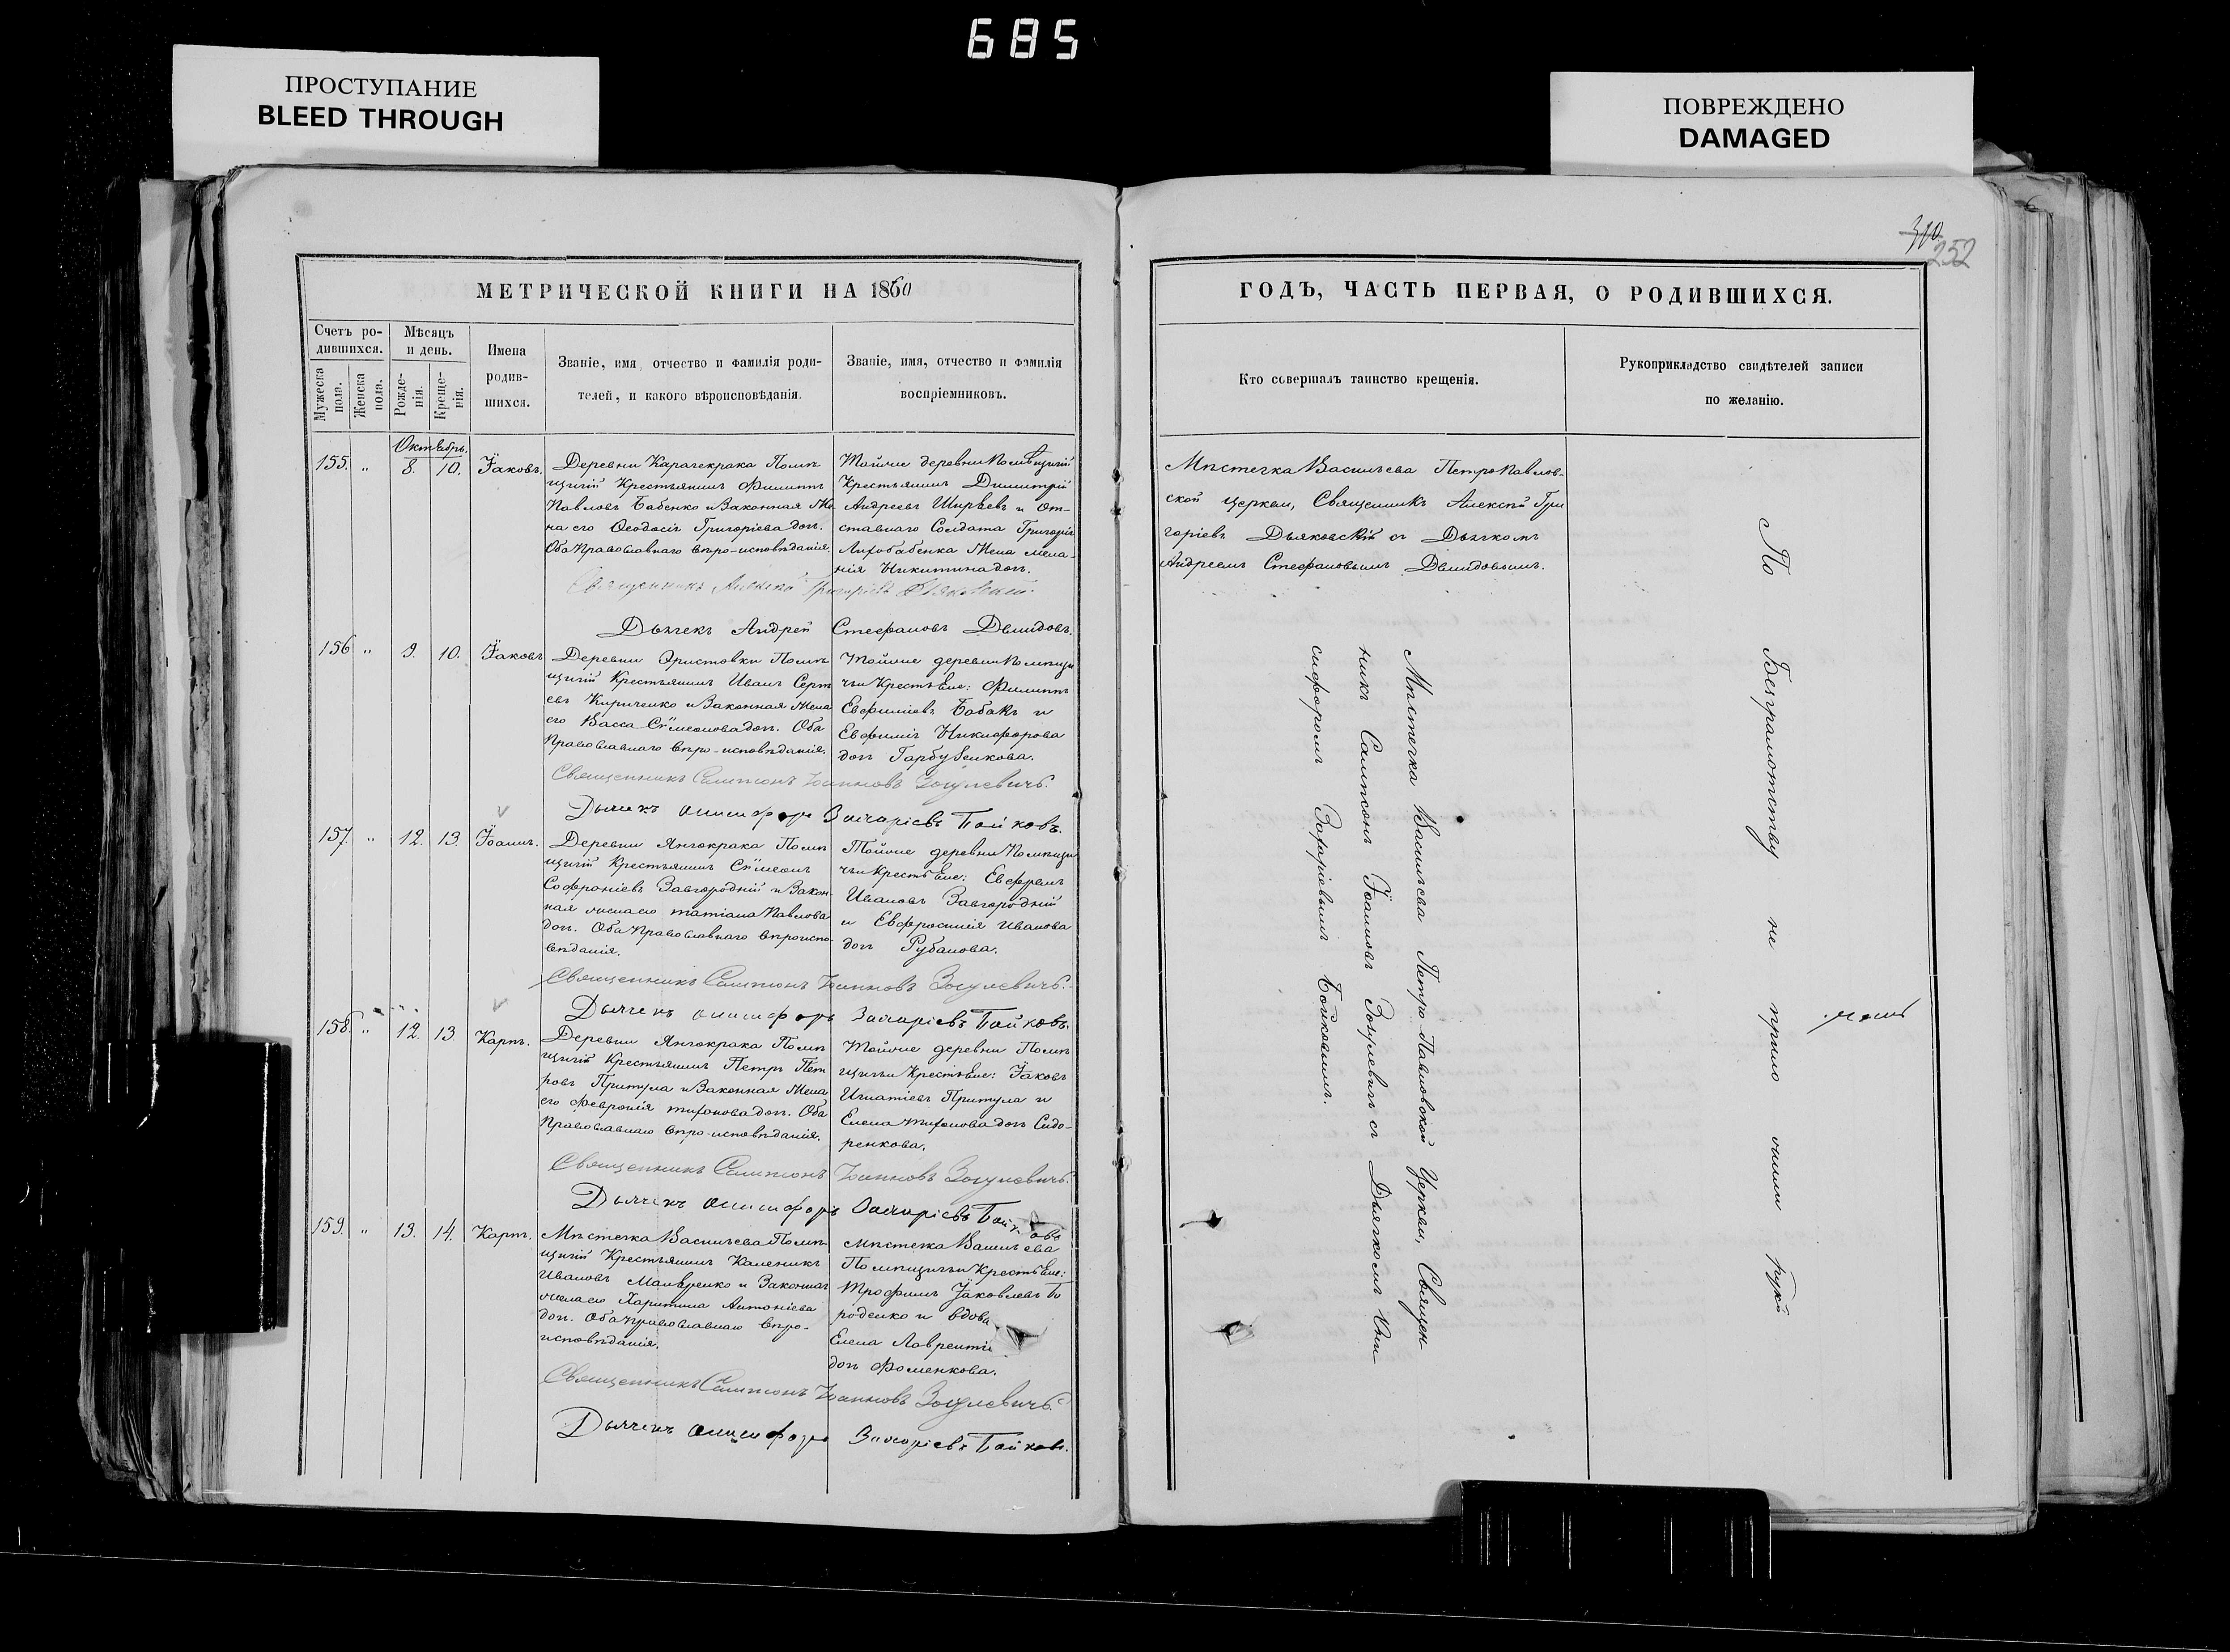 685
ПРОСТУПАНИЕ
BLEED THROUGH
ПОВРЕЖДЕНО
DAMAGED
МЕТРИЧЕСКОЙ КНИГИ НА 1860
Счетъ ро-
дившихся.
Мужеска
пола.
Женска
пола.
Мѣсяцъ
и день.
Рожде-
нія.
Креще-
нія.
Имена
родив-
шихся.
Званіе, имя, отчество и фамилія роди-
телей, и какого вѣроисповѣданія.
Званіе, имя, отчество и фамилія
воспріемниковъ.
Октябрь.
155. " 8. 10. Іаковъ.
Деревни Карачекрака Помѣ-
щичій Крестьянинъ Филиппъ
Павловъ Бабенко и Законная Же-
на его Ѳеодосія Григоріева доч.
Оба Православнаго вѣро-исповѣданія.
Тойже деревни Помѣщичій
Крестьянинъ Димитрій
Андреевъ Ширяевъ и От-
ставнаго Солдата Григорія
Лихобабенка Жена Мела-
нія Никитина доч.
Священникъ Алексій Григоріевъ Дьяковскій.
Дьячекъ Андрей Стефановъ Демидовъ.
156 " 9. 10. Іаковъ
Деревни Эристовки Помѣ-
щичій Крестьянинъ Иванъ Серге
евъ Кириченко и Законная Жена
его Васса Сѵмеонова доч. Оба
Православнаго вѣро-исповѣданія.
Тойже деревни Помѣщи
чьи Крестьяне: Филиппъ
Евфиміевъ Бабакъ и
Евфимія Никифорова
доч Гарбузенкова.
Священникъ Сампсонъ Іоанновъ Зосулевичъ.
Дьячекъ Онисифоръ Захаріевъ Бойковъ.
157. " 12. 13. Іоаннъ.
Деревни Янчокрака Помѣ
щичій Крестьянинъ Сѵмеонъ
Софроніевъ Завгородній и Закон-
ная жена его Татіана Павлова
доч. Оба Православнаго вѣроиспо-
вѣданія.
Тойже деревни Помѣщи
чьи Крестьяне: Ефремъ
Ивановъ Завгородній
и Евфросинія Иванова
доч Рубанова.
Священникъ Сампсонъ Іоанновъ Зосулевичъ.
Дьячекъ Онисифоръ Захаріевъ Бойковъ.
158. " 12. 13. Карпъ.
Деревни Янчокрака Помѣ
щичій Крестьянинъ Петръ Пет
ровъ Притула и Законная Жена
его Февронія Тихонова доч. Оба
Православнаго вѣро-исповѣданія.
Тойже деревни Помѣ
щичьи Крестьяне: Іаковъ
Игнатіевъ Притула и
Елена Тихонова доч Сидо-
ренкова.
Священникъ Сампсонъ Іоанновъ Зосулевичъ.
Дьячекъ Онисифоръ Захаріевъ Бойковъ
159. " 13. 14. Карпъ.
Мѣстечка Васильева Помѣ
щичій Крестьянинъ Каленикъ
Ивановъ Мавренко и Законная
жена его Харитина Антоніева
доч. Оба православнаго вѣро-
исповѣданія.
мѣстечка Васильева
Помѣщичьи Крестьяне:
Трофимъ Іаковлевъ
и вдова
Елена Лаврентіе
доч Фоменкова.
Священникъ Сампсонъ Іоанновъ Зосулевичъ.
Дьячекъ Онисифоръ Захаріевъ Бойковъ.
310
252
ГОДЪ, ЧАСТЬ ПЕРВАЯ, О РОДИВШИХСЯ.
Кто совершалъ таинство крещенія.
Рукоприкладство свидѣтелей записи
по желанію.
Мѣстечка Васильева Петропавлов-
ской Церкви, Священникъ Алексій Гри
горіевъ Дьяковскій съ Дьячкомъ
Андреемъ Стефановымъ Демидовымъ.
Мѣстечка Васильева Петро-Павловской Церкви, Священ-
никъ Сампсонъ Іоанновъ Зосулевичъ съ Дьячкомъ Они-
сифоромъ Захаріевымъ Бойковымъ.
По Безграмотству не
руки